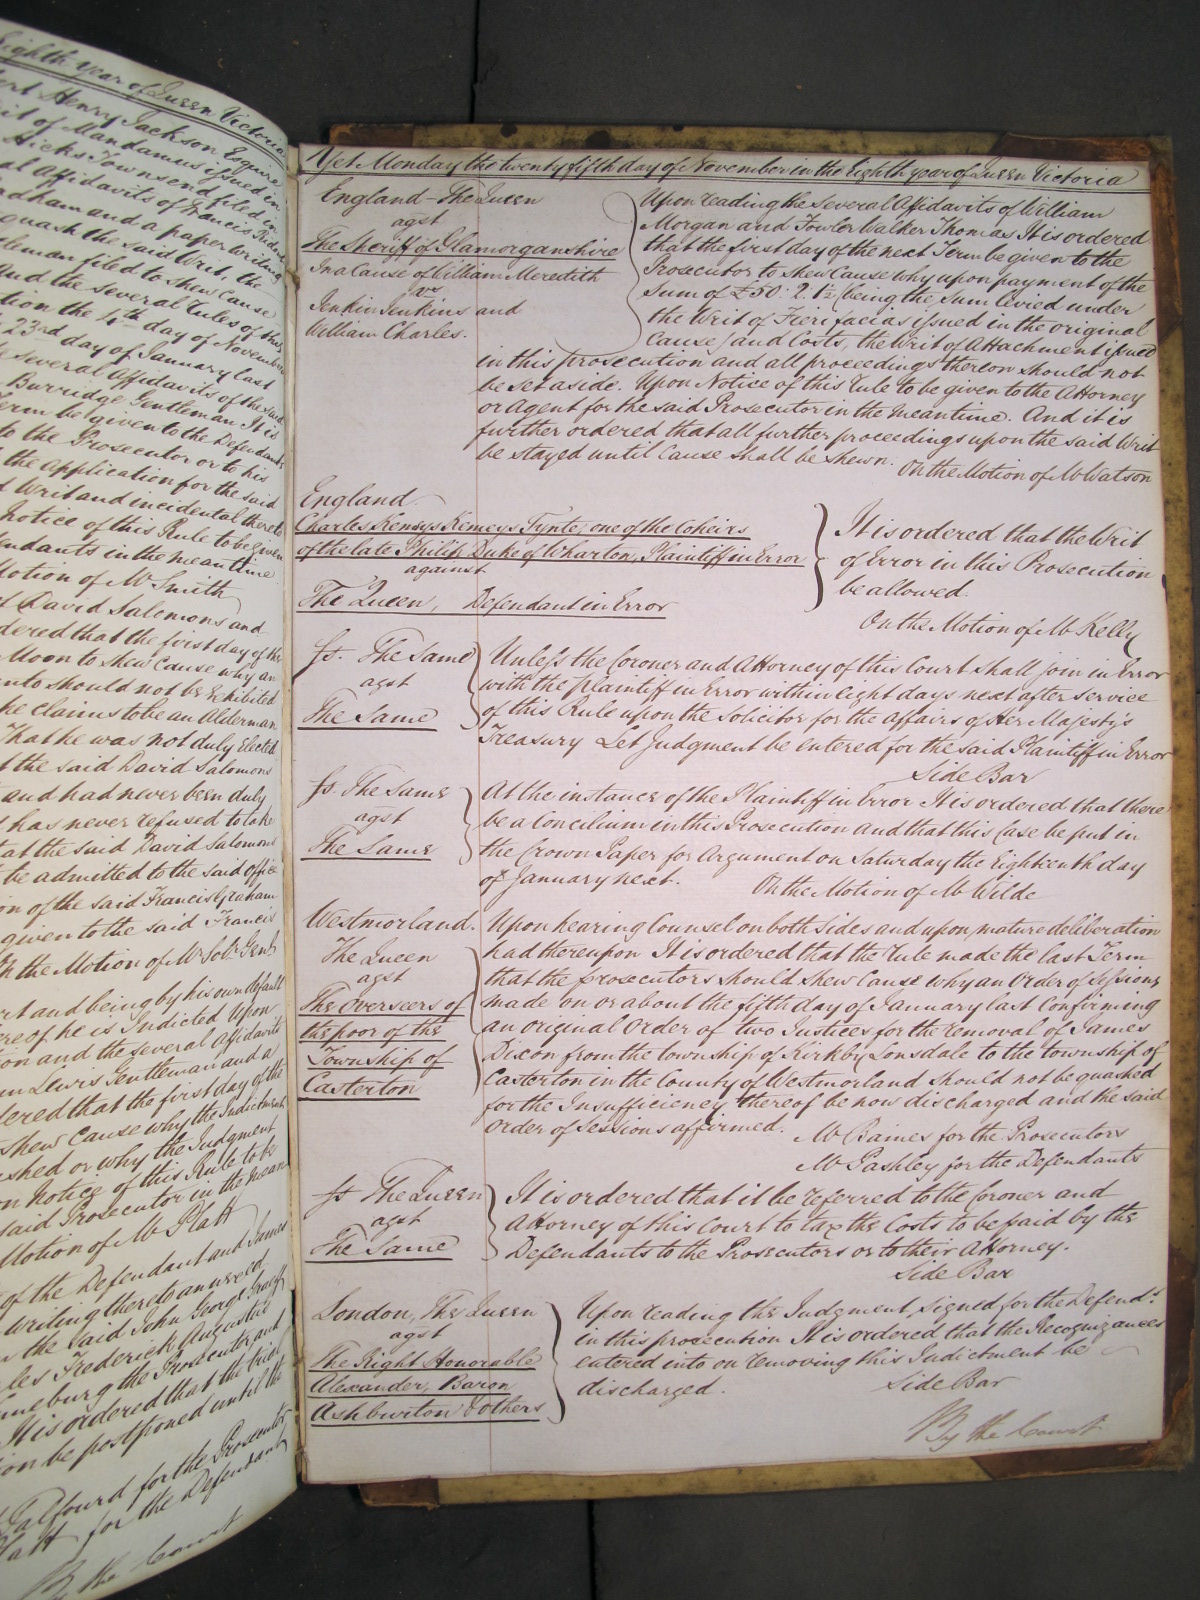 Eighth year of Queen Victoria
Henry Jackson Esquire
of Mandamus issued in
Hicks Townsend filed in
Affidavits of Francis
and a paper writing
quash the said Writ, the
filed to shew Cause
and the several Rules of this
the 4th day of November
23rd day of January last
several Affidavits of the said
Burridge Gentleman It is
Term be given to the Defendants
to the Prosecutor or to his
the Application for the said
Writ and incidental thereto
Notice of this Rule to be given
in the meantime
Motion of Mr Smith
of David Salomons and
ordered that the first day of the
Moon to shew Cause why an
should not be Exhibited
he claims to be an Alderman
That he was not duly Elected
the said David Salomons
and had never been duly
has never refused to take
that the said David Salomons
be admitted to the said office
of the said Francis Graham
given to the said Francis
On the Motion of Mr Solr. Genl.
and being by his own default
he is Indicted Upon
and the several Affidavits
Lewis Gentleman and a
ordered that the first day of the
shew Cause why the Indictment
or why the Judgment
on Notice of this Rule to be
said Prosecutor in the mean
Motion of Mr Platt
of the Defendant and James
writing thereto annexed
the said John George
Frederick Augustus
the Prosecutor, and
It is ordered that the trial
be postponed until the
Talfourd for the Prosecutor
Platt for the Defendant
By the Court
Yet Monday the twenty fifth day of November in the Eighth year of Queen Victoria
England - The Queen
agst
The Sheriff of Glamorganshire
In a Cause of William Meredith
vs
Jenkin Jenkins and
William Charles.
Upon reading the several Affidavits of William
Morgan and Fowler Walker Thomas It is ordered
that the first day of the next Term be given to the
Prosecutor to shew Cause why upon payment of the
Sum of £50: 2. 1½ (being the Sum levied under
the Writ of Fieri facias issued in the original
Cause) and Costs, the Writ of Attachment issued
in this prosecution and all proceedings thereon should not
be set aside. Upon Notice of this Rule to be given to the Attorney
or Agent for the said Prosecutor in the meantime. And it is
further ordered that all further proceedings upon the said Writ
be stayed until Cause shall be shewn. On the Motion of Mr Watson
England
Charles Kemys Kemeys Tynte, one of the Coheirs
of the late Philip Duke of Wharton, Plaintiff in Error
against
The Queen, Defendant in Error
It is ordered that the Writ
of Error in this Prosecution
be allowed.
On the Motion of Mr Kelly
fs. The Same
agst
The Same
Unless the Coroner and Attorney of this Court shall join in Error
with the plaintiff in Error within Eight days next after service
of this Rule upon the Solicitor for the affairs of Her Majesty's
Treasury Let Judgment be entered for the said Plaintiff in Error
Side Bar
fs. The Same
agst
The Same
At the instance of the Plaintiff in Error It is ordered that there
be a Concilium in this Prosecution and that this Case be put in
the Crown Paper for Argument on Saturday the Eighteenth day
of January next. On the Motion of Mr Wilde
Westmorland.
The Queen
agst
The Overseers of
the poor of the
Township of
Casterton
Upon hearing Counsel on both Sides and upon mature deliberation
had thereupon It is ordered that the Rule made the last Term
that the prosecutors should shew Cause why an Order of Sessions
made on or about the fifth day of January last Confirming
an original Order of two Justices for the removal of James
Dixon from the township of Kirkby Lonsdale to the township of
Casterton in the County of Westmorland should not be quashed
for the Insufficiency thereof be now discharged and the said
Order of Sessions affirmed. Mr Baines for the Prosecutors
Mr Pashley for the Defendants
fs The Queen
agst
The Same
It is ordered that it be referred to the Coroner and
Attorney of this Court to tax the Costs to be paid by the
Defendants to the Prosecutors or to their Attorney.
Side Bar
London, The Queen
agst
The Right Honorable
Alexander, Baron
Ashburton & others
Upon reading the Judgment signed for the Defendts.
in this prosecution It is ordered that the Recognizances
entered into on removing this Indictment be
discharged. Side Bar
By the Court